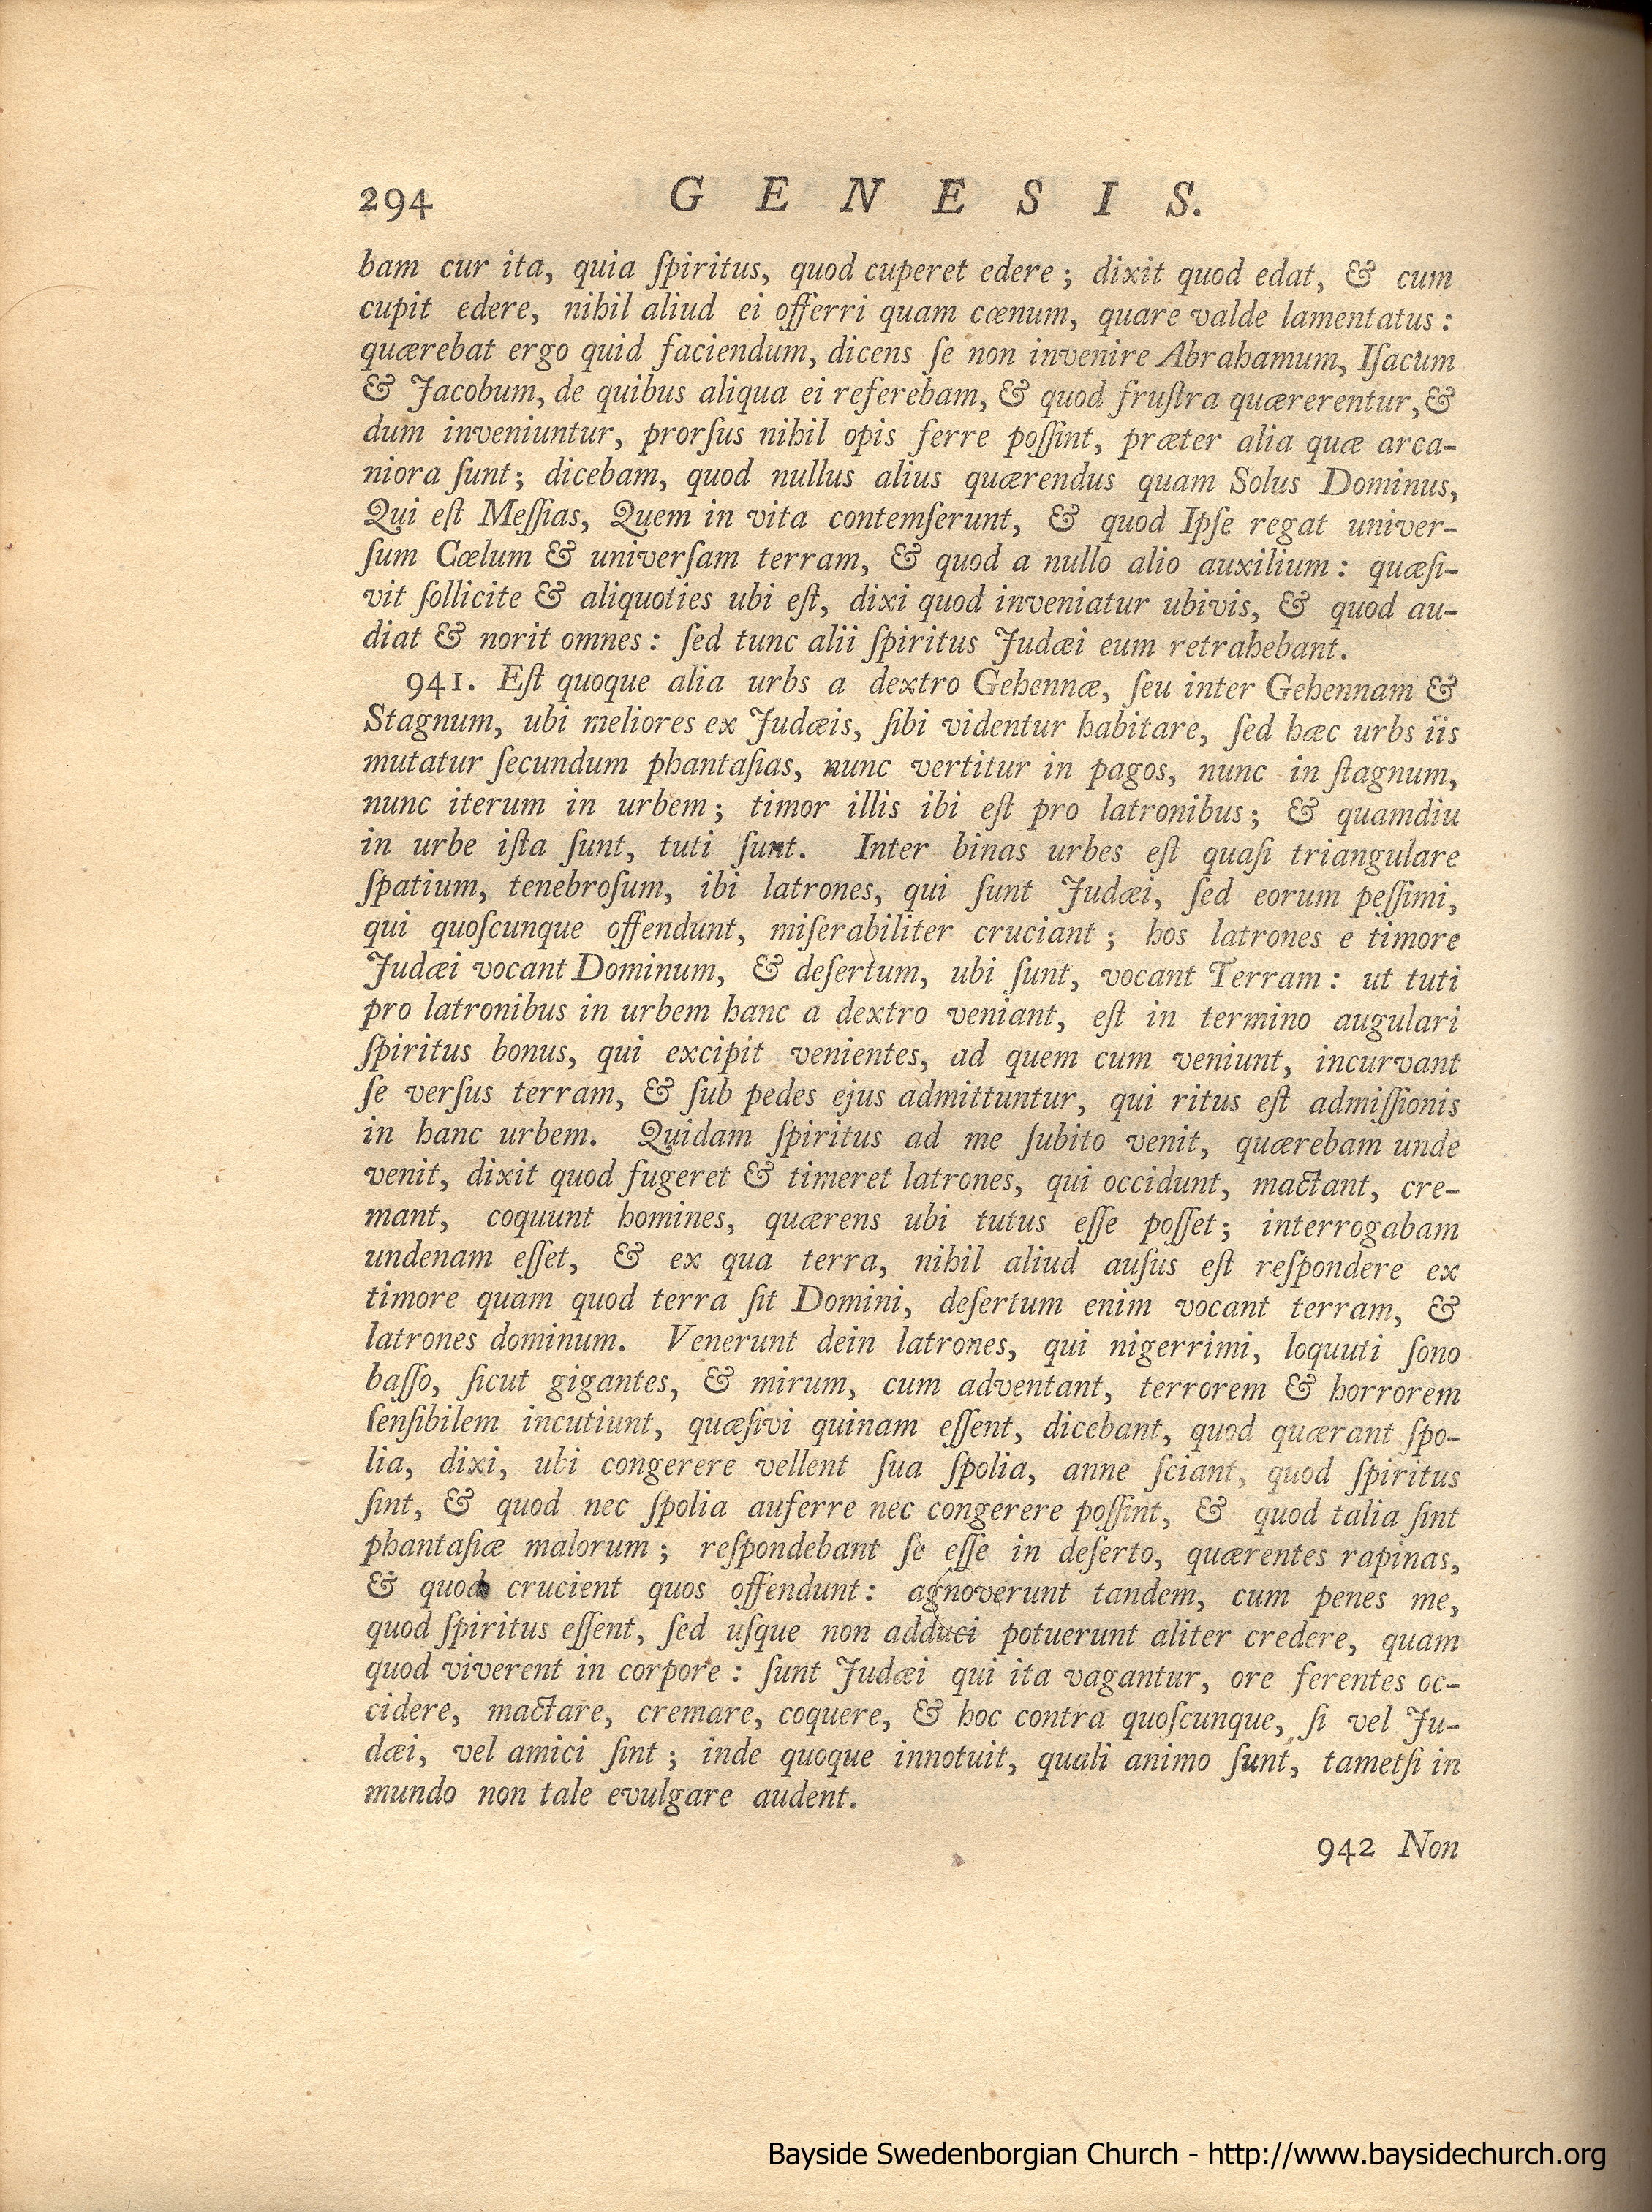 294 GENESIS.
bam cur ita, quia ſpiritus, quod cuperet edere; dixit quod edat, & cum
cupit edere, nihil aliud ei offerri quam cœnum, quare valde lamentatus:
quærebat ergo quid faciendum, dicens ſe non invenire Abrahamum, Iſacum
& Jacobum, de quibus aliqua ei referebam, & quod fruſtra quærerentur, &
dum inveniuntur, prorſus nihil opis ferre poſſint, præter alia quæ arca-
niora ſunt; dicebam, quod nullus alius quærendus quam Solus Dominus,
Qui eſt Meſſias, Quem in vita contemſerunt, & quod Ipſe regat univer-
ſum Cœlum & univerſam terram, & quod a nullo alio auxilium: quæſi-
vit ſollicite & aliquoties ubi eſt, dixi quod inveniatur ubivis, & quod au-
diat & norit omnes: ſed tunc alii ſpiritus Judæi eum retrahebant.
941. Eſt quoque alia urbs a dextro Gehennæ, ſeu inter Gehennam &
Stagnum, ubi meliores ex Judæis, ſibi videntur habitare, ſed hæc urbs iis
mutatur ſecundum phantaſias, nunc vertitur in pagos, nunc in ſtagnum,
nunc iterum in urbem; timor illis ibi eſt pro latronibus; & quamdiu
in urbe iſta ſunt, tuti ſunt. Inter binas urbes eſt quaſi triangulare
ſpatium, tenebroſum, ibi latrones, qui ſunt Judæi, ſed eorum peſſimi,
qui quoſcunque offendunt, miſerabiliter cruciant; hos latrones e timore
Judæi vocant Dominum, & deſertum, ubi ſunt, vocant Terram: ut tuti
pro latronibus in urbem hanc a dextro veniant, eſt in termino augulari
ſpiritus bonus, qui excipit venientes, ad quem cum veniunt, incurvant
ſe verſus terram, & ſub pedes ejus admittuntur, qui ritus eſt admiſſionis
in hanc urbem. Quidam ſpiritus ad me ſubito venit, quærebam unde
venit, dixit quod fugeret & timeret latrones, qui occidunt, mactant, cre-
mant, coquunt homines, quærens ubi tutus eſſe poſſet; interrogabam
undenam eſſet, & ex qua terra, nihil aliud auſus eſt reſpondere ex
timore quam quod terra ſit Domini, deſertum enim vocant terram, &
latrones dominum. Venerunt dein latrones, qui nigerrimi, loquuti ſono
baſſo, ſicut gigantes, & mirum, cum adventant, terrorem & horrorem
ſenſibilem incutiunt, quæſivi quinam eſſent, dicebant, quod quærant ſpo-
lia, dixi, ubi congerere vellent ſua ſpolia, anne ſciant, quod ſpiritus
ſint, & quod nec ſpolia auferre nec congerere poſſint, & quod talia ſint
phantaſiæ malorum; reſpondebant ſe eſſe in deſerto, quærentes rapinas,
& quod crucient quos offendunt: agnoverunt tandem, cum penes me,
quod ſpiritus eſſent, ſed uſque non adduci potuerunt aliter credere, quam
quod viverent in corpore: ſunt Judæi qui ita vagantur, ore ferentes oc-
cidere, mactare, cremare, coquere, & hoc contra quoſcunque, ſi vel Ju-
dæi, vel amici ſint; inde quoque innotuit, quali animo ſunt, tametſi in
mundo non tale evulgare audent.
942 Non
Bayside Swedenborgian Church - http://www.baysidechurch.org